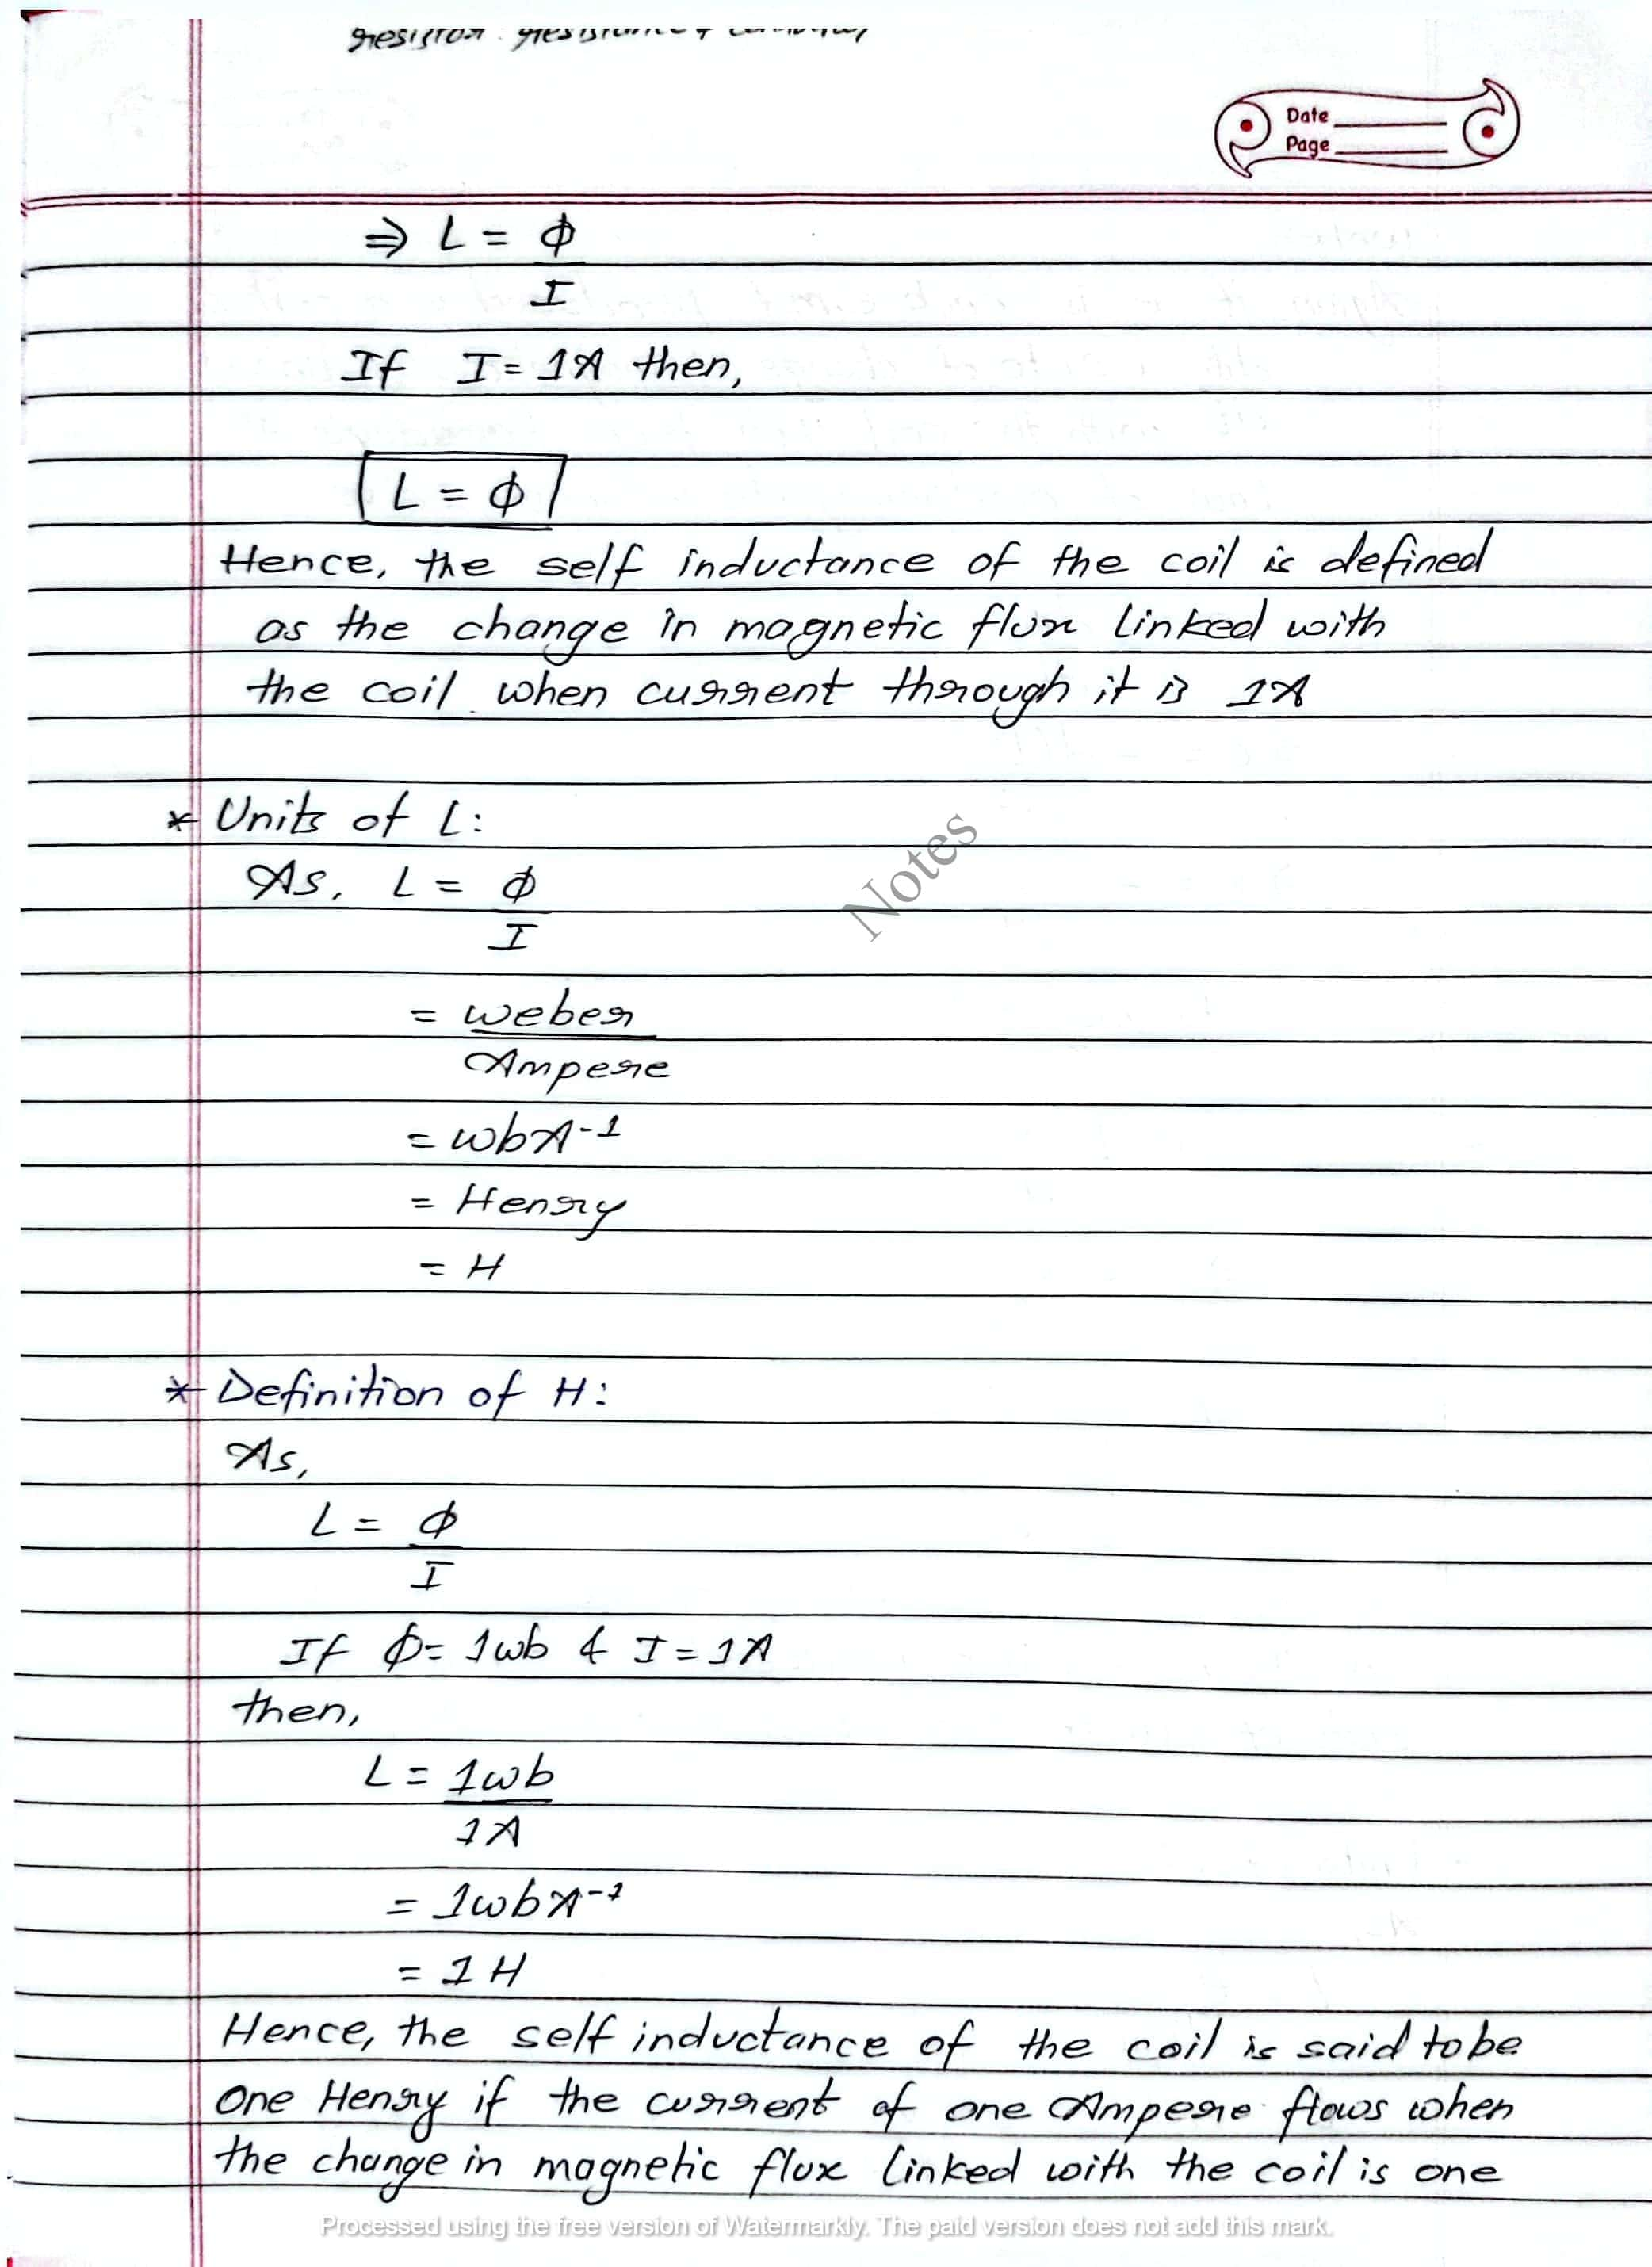 resistor resistance &
Date
Page
⇒ L = ϕ
I
If I = 1A then,
L = ϕ
Hence, the self inductance of the coil is defined
as the change in magnetic flux linked with
the coil when current through it is 1A
* Units of L:
As, L = ϕ
I
= weber
Ampere
= wbA⁻¹
= Henry
= H
Notes
* Definition of H:
As,
L = ϕ
I
If ϕ = 1wb & I = 1A
then,
L = 1wb
1A
= 1wbA⁻¹
= 1H
Hence, the self inductance of the coil is said to be
one Henry if the current of one Ampere flows when
the change in magnetic flux linked with the coil is one
Processed using the free version of Watermarkly. The paid version does not add this mark.